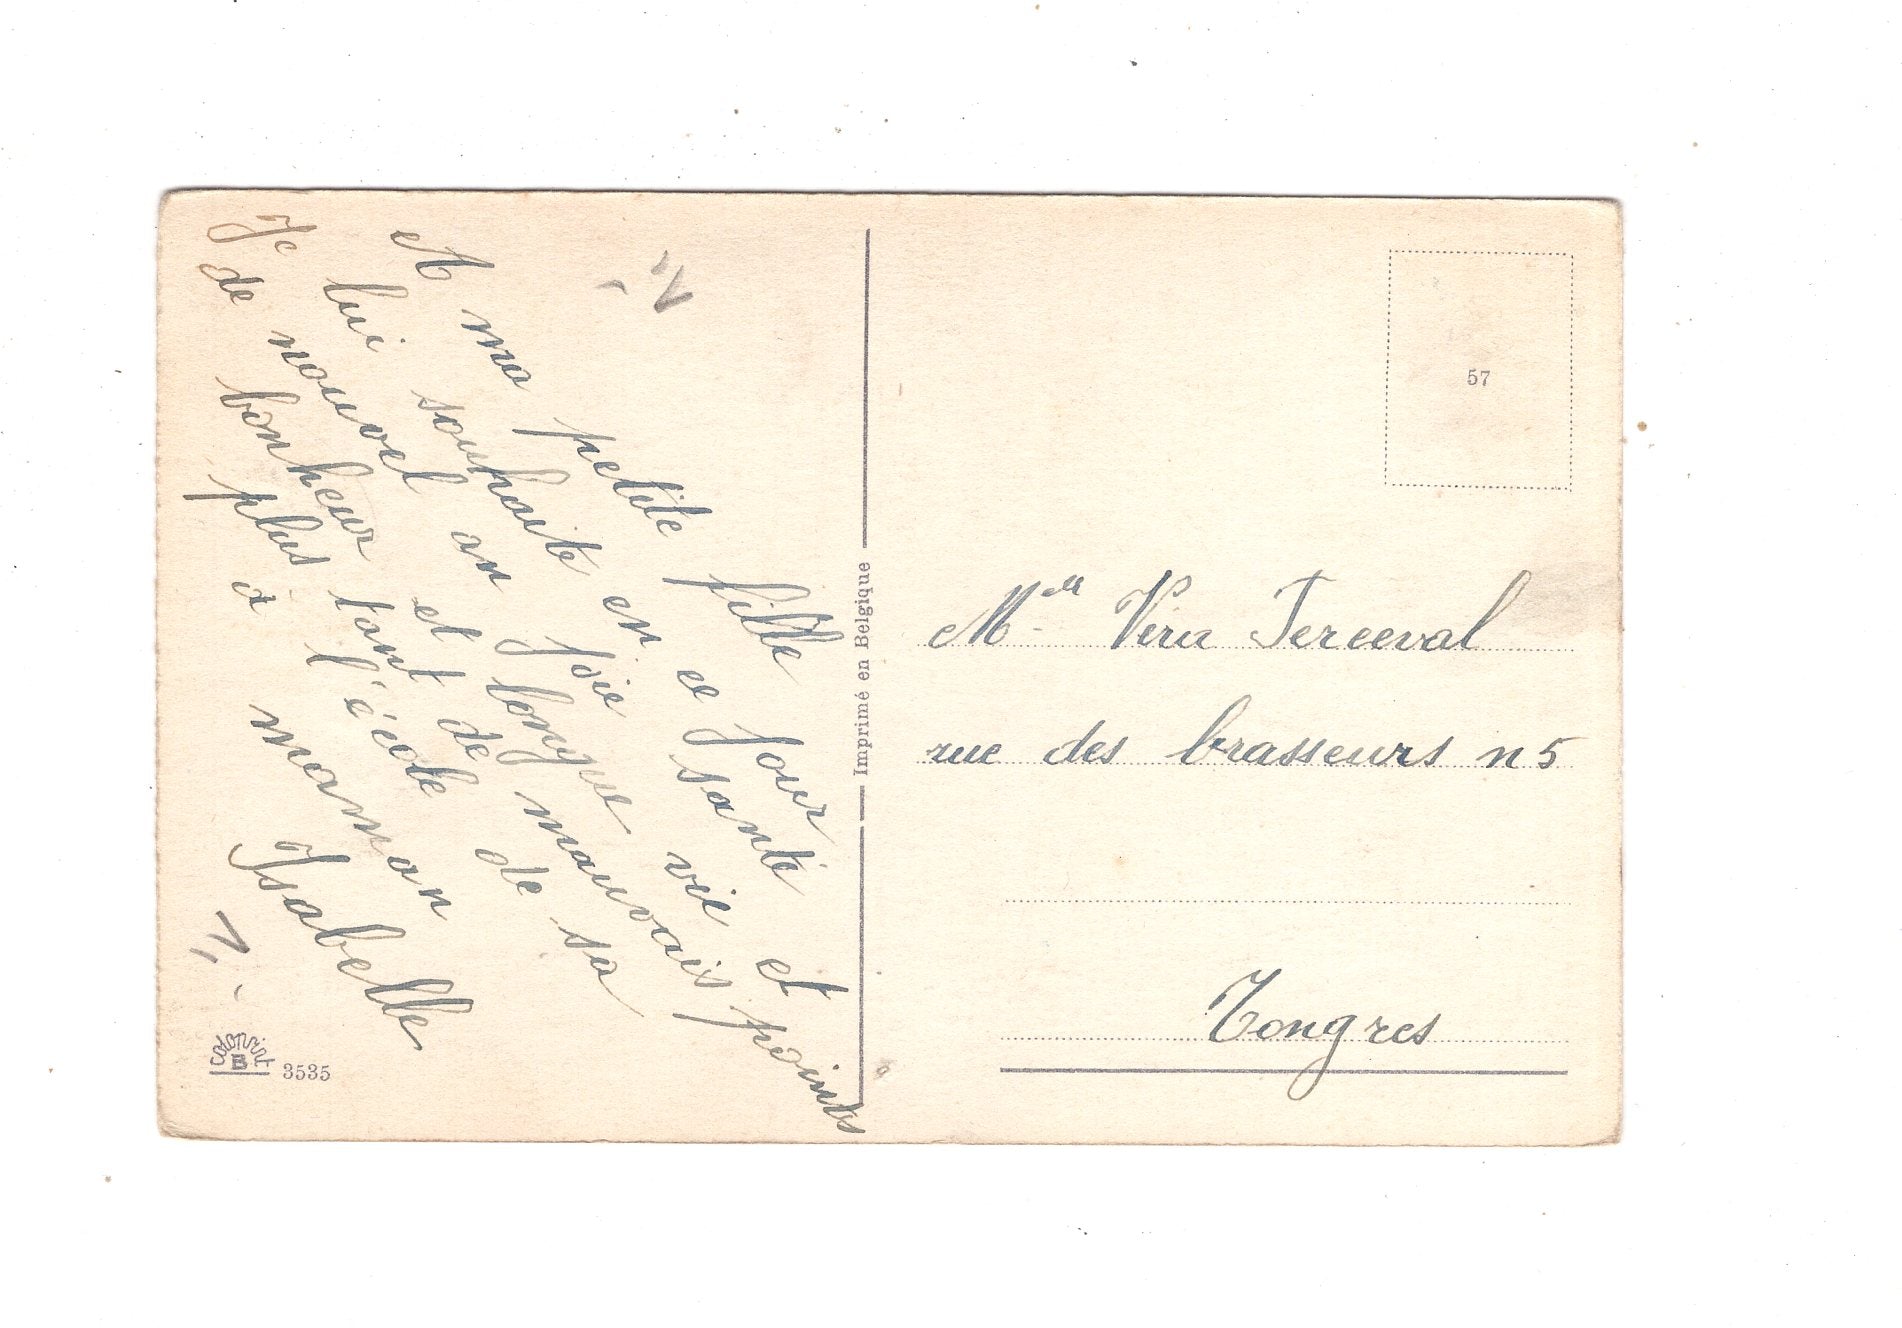 A ma petite fille
Je lui souhaite en ce jour
de nouvel an joie santé
bonheur et longue vie et
plus tant de mauvais points
à l'école de sa
maman
Isabelle
Colorprint
B 3535
Imprimé en Belgique
57
Melle Vera Terceval
rue des brasseurs n 5
Tongres